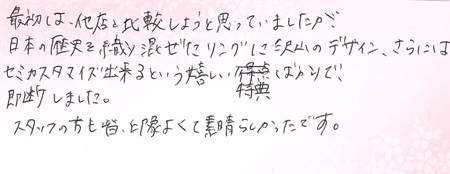 最初は、他店と比較しようと思っていましたが、
日本の歴史を織り混ぜたリングに沢山のデザイン、さらには
セミカスタマイズ出来るという嬉しい得点ばかりで、
特典
即断しました。
スタッフの方も皆、印象よくて素晴らしかったです。